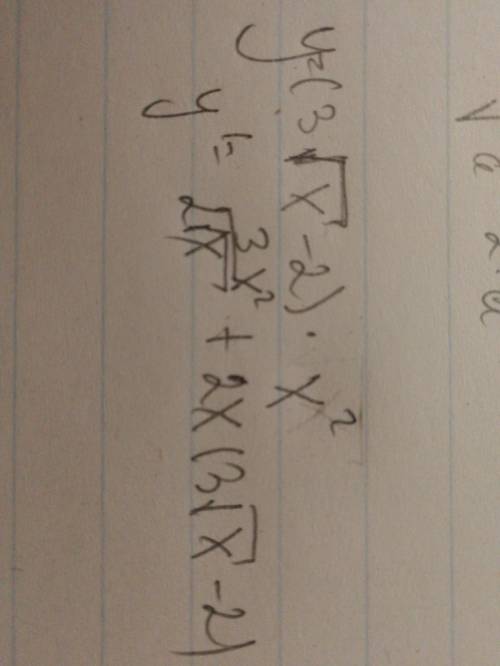 √ a 2·a
y=(3√x - 2) · x²
y' = 3x²/2√x + 2x(3√x - 2)